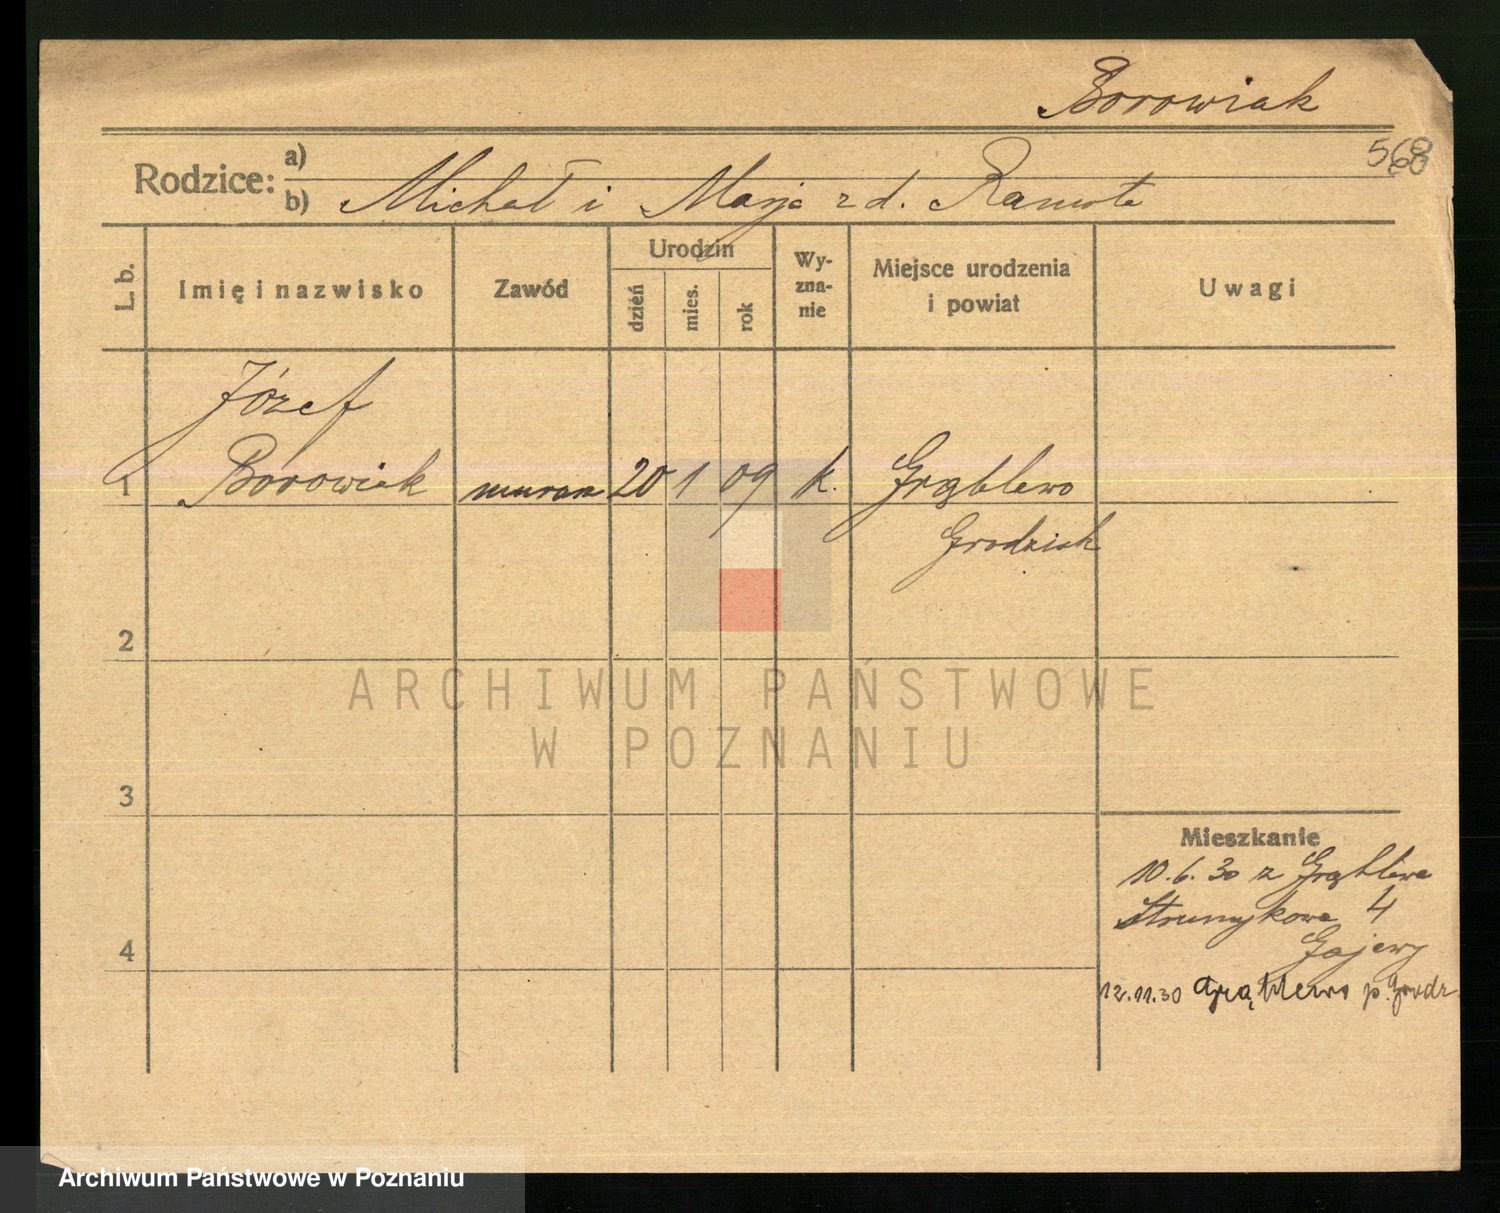 Borowiak
568
Rodzice: a)
b) Michał i Marja z d. Ramota
L. b.
Imię i nazwisko
Zawód
Urodzin
dzień
mies.
rok
Wy-
zna-
nie
Miejsce urodzenia
i powiat
Uwagi
Józef
1 Borowiak murarz 20 1 09 k. Grąblewo
Grodzisk
2
ARCHIWUM PAŃSTWOWE
W POZNANIU
3
Mieszkanie
10.6.30 z Grąblewa
Strumykowa 4
4
12.11.30 Grąblewo p. Grodz.
Archiwum Państwowe w Poznaniu